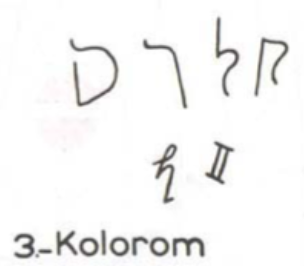 קלרם
II
3.-Kolorom